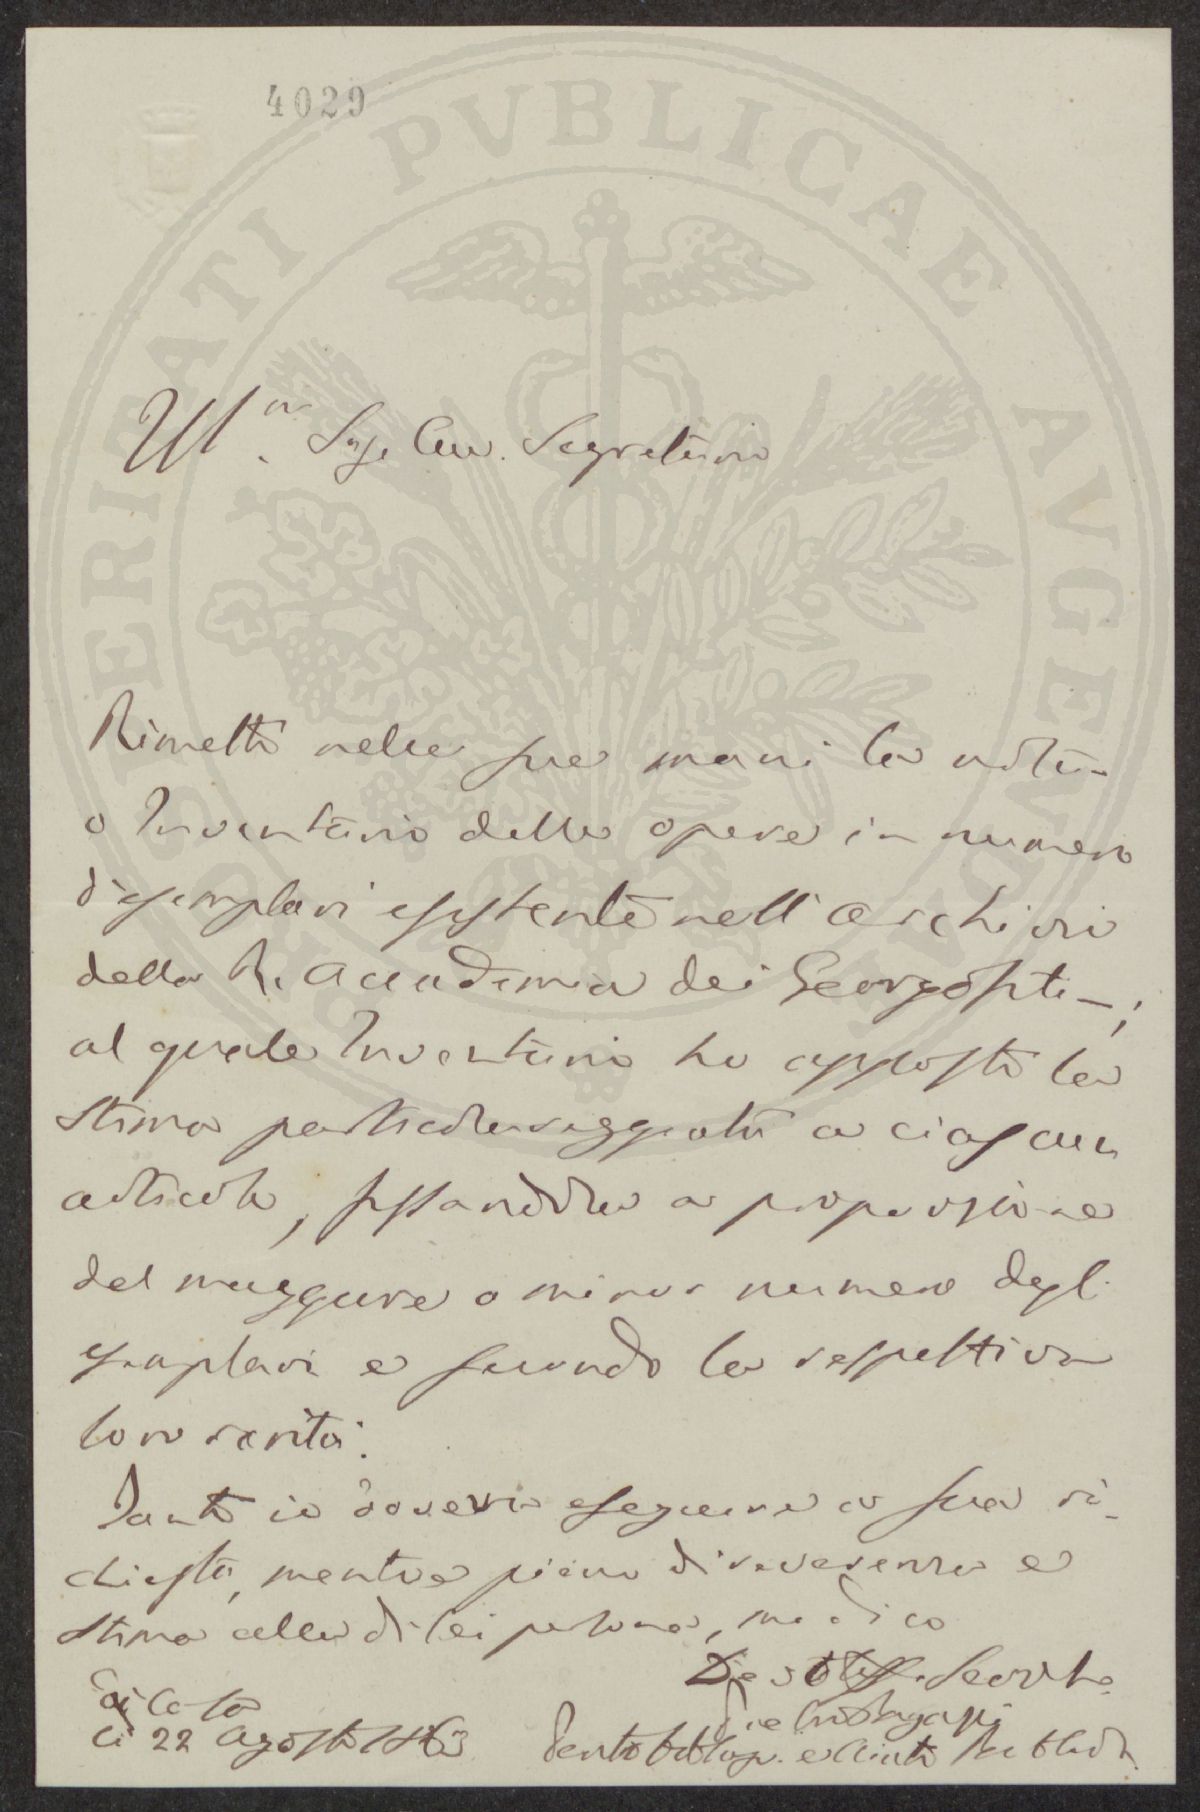 4029
PROSPERITATI PVBLICAE AVGENDAE
Ill.mo Sig. Cav. Segretario
Rimetto nelle sue mani la nota
o Inventario delle opere in numero
d'esemplari esistente nell'archivio
della R. Accademia dei Georgofili;
al quale Inventario ho apposto la
stima particolareggiata a ciascun
articolo, fissandola a proporzione
del maggiore o minor numero degli
esemplari e secondo la respettiva
loro rarità.
Tanto io doveva eseguire a sua ri-
chiesta, mentre pieno di reverenza e
stima alla di lei persona, mi dico
Servito
Di Casa
li 22 Agosto 1863
Perito e Aiuto